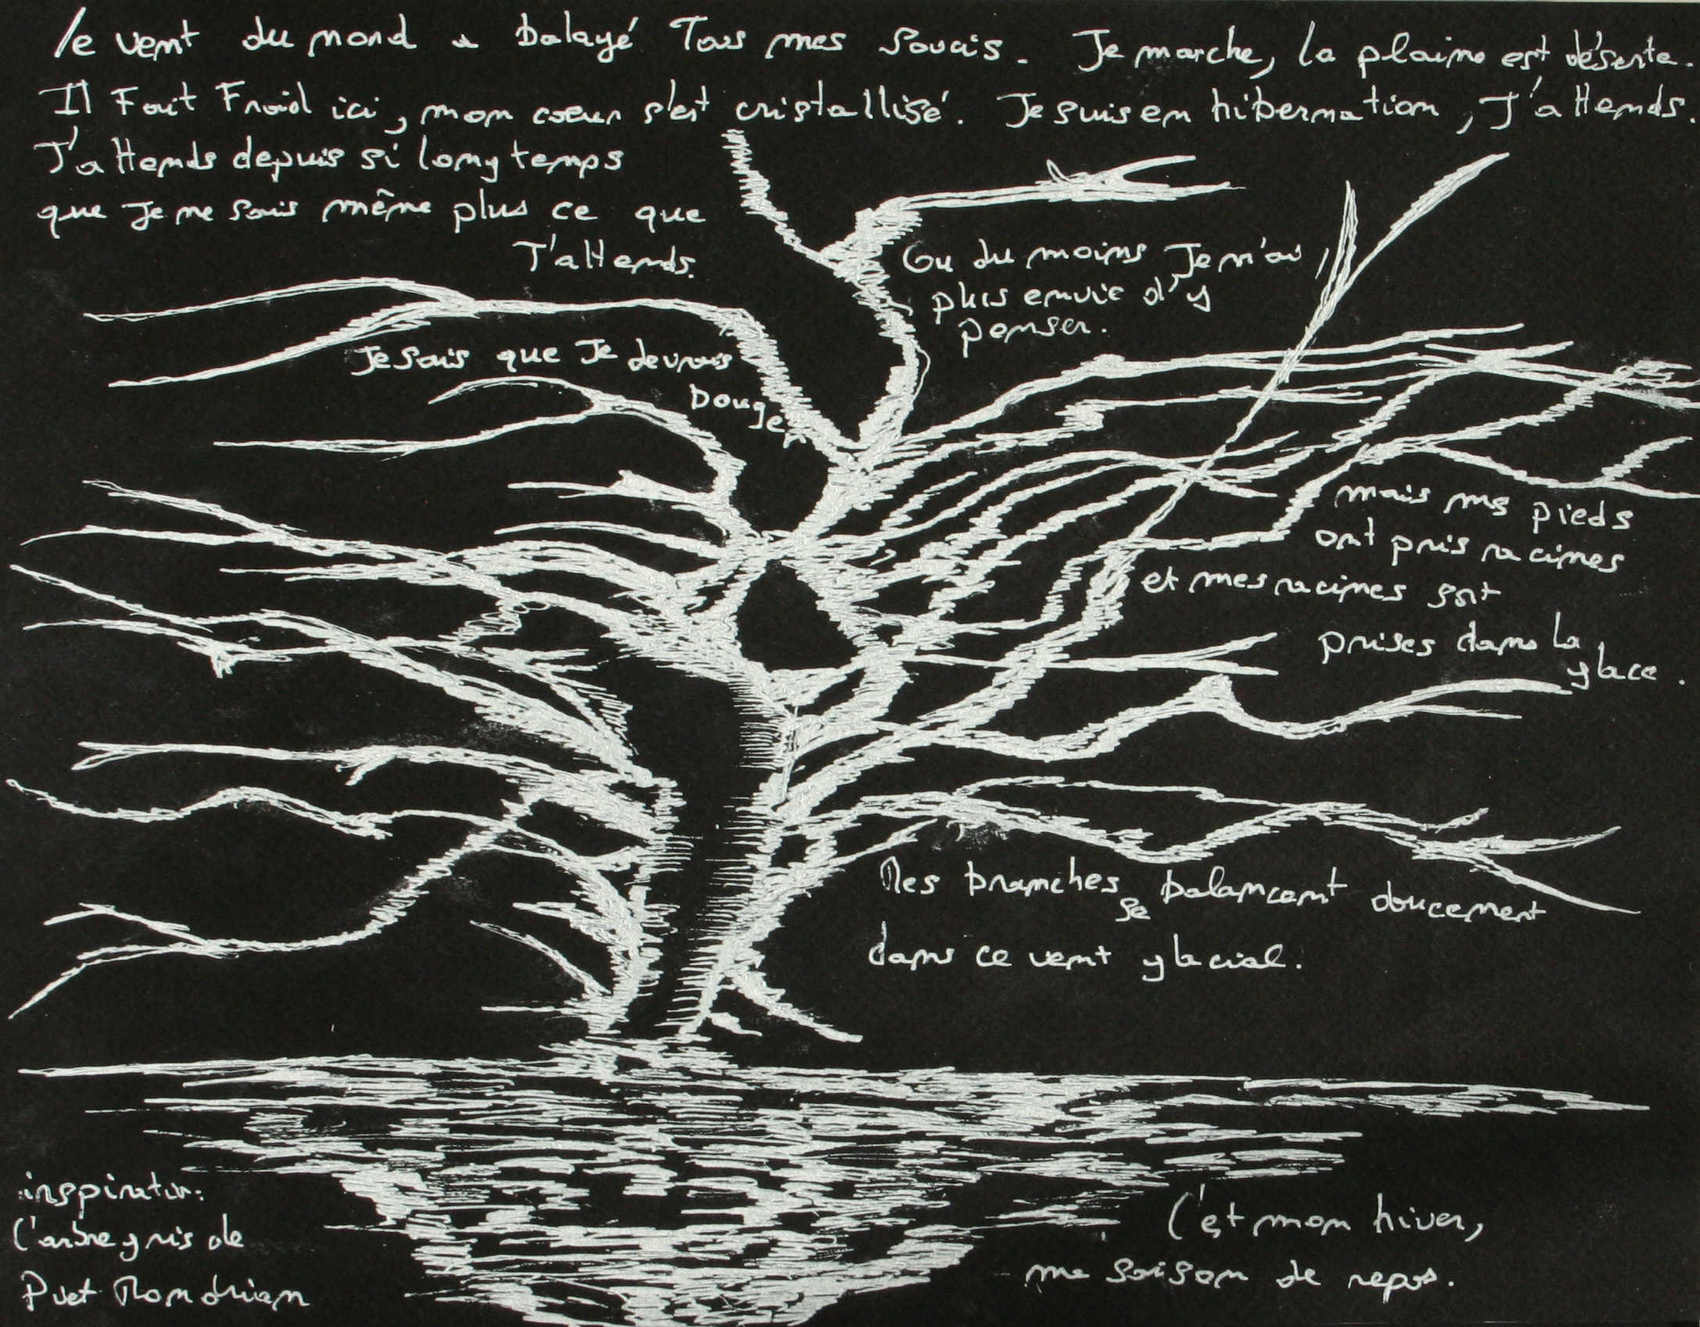 le vent du nord a balayé Tous mes soucis. Je marche, la plaine est déserte.
Il Fait Froid ici, mon coeur s'est cristallisé. Je suis en hibernation, J'attends.
J'attends depuis si longtemps
que Je ne sais même plus ce que
J'attends.
Ou du moins Je n'ai
plus envie d'y
penser.
Je sais que Je devrais
bouger
mais mes pieds
ont pris racines
et mes racines sont
prises dans la
glace.
Mes branches se balancent doucement
dans ce vent glacial.
C'est mon hiver,
ma saison de repos.
inspiration:
l'arbre gris de
Piet Mondrian